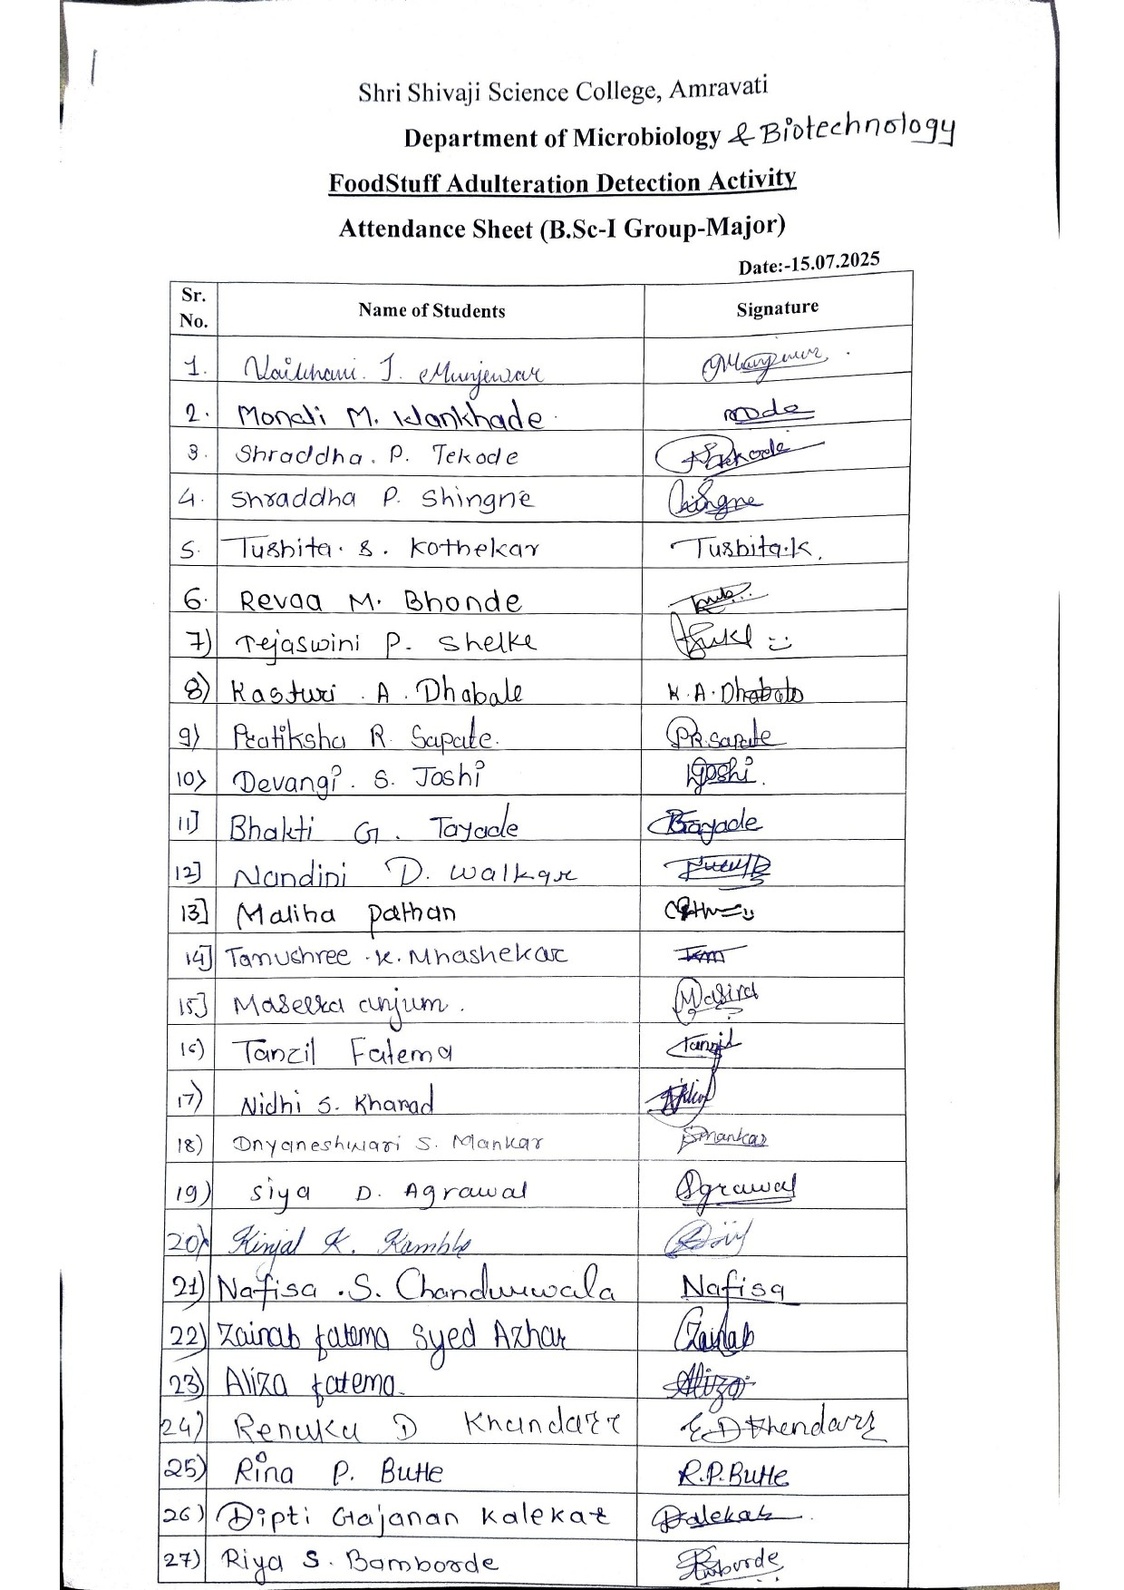 Shri Shivaji Science College, Amravati
Department of Microbiology & Biotechnology
FoodStuff Adulteration Detection Activity
Attendance Sheet (B.Sc-I Group-Major)
Date:-15.07.2025
Sr. No. Name of Students Signature
1. J. Munjewar
2. Monali M. Wankhade
3. Shraddha. P. Tekode
4. Shraddha P. Shingne
5. Tushita. S. Kothekar Tushita.K.
6. Revaa M. Bhonde
7) Tejaswini P. Shelke
8) Kasturi . A . Dhabale K. A. Dhabale
9) Pratiksha R. Sapate. PR.Sapate
10) Devangi . S. Joshi Joshi.
11] Bhakti G. Tayade Tayade
12] Nandini D. Walkar
13] Maliha pathan
14] Tanushree .K. Mhashekar
15] anjum.
16) Tanzil Fatema Tanzil
17) Nidhi S. Kharad
18) Dnyaneshwari S. Mankar Smankar
19) Siya D. Agrawal Agrawal
20) Kinjal K. Kamble
21) Nafisa .S. Nafisa
22) Zainab fatema Syed Azhar Zainab
23) Aliza fatema. Aliza
24) Renuka D Khandare
25) Rina P. Butle R.P.Butle
26) Dipti Gajanan Kalekar Dalekar
27) Riya S. Bamborde